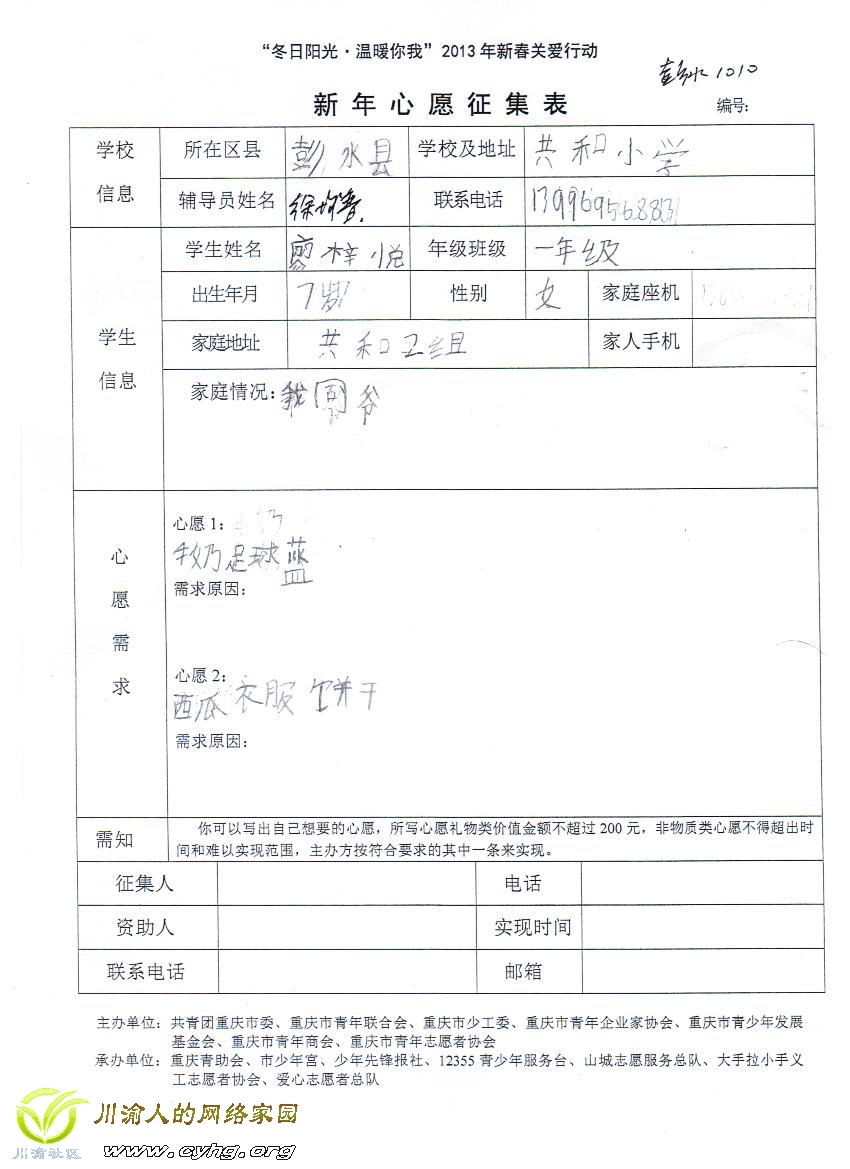 “冬日阳光·温暖你我”2013年新春关爱行动
彭水 1010
新年心愿征集表 编号:
学校信息 所在区县 彭水县 学校及地址 共和小学
辅导员姓名 联系电话 13996956883
学生信息 学生姓名 廖梓悦 年级班级 一年级
出生年月 7岁 性别 女 家庭座机
家庭地址 共和卫组 家人手机
家庭情况: 我 爷
心愿需求
心愿1:
牛奶足球蓝
需求原因:
心愿2:
西瓜衣服饼干
需求原因:
需知 你可以写出自己想要的心愿，所写心愿礼物类价值金额不超过200元，非物质类心愿不得超出时
间和难以实现范围，主办方按符合要求的其中一条来实现。
征集人 电话
资助人 实现时间
联系电话 邮箱
主办单位：共青团重庆市委、重庆市青年联合会、重庆市少工委、重庆市青年企业家协会、重庆市青少年发展
基金会、重庆市青年商会、重庆市青年志愿者协会
承办单位：重庆青助会、市少年宫、少年先锋报社、12355青少年服务台、山城志愿服务总队、大手拉小手义
工志愿者协会、爱心志愿者总队
川渝人的网络家园
川渝社区 www.cyhg.org